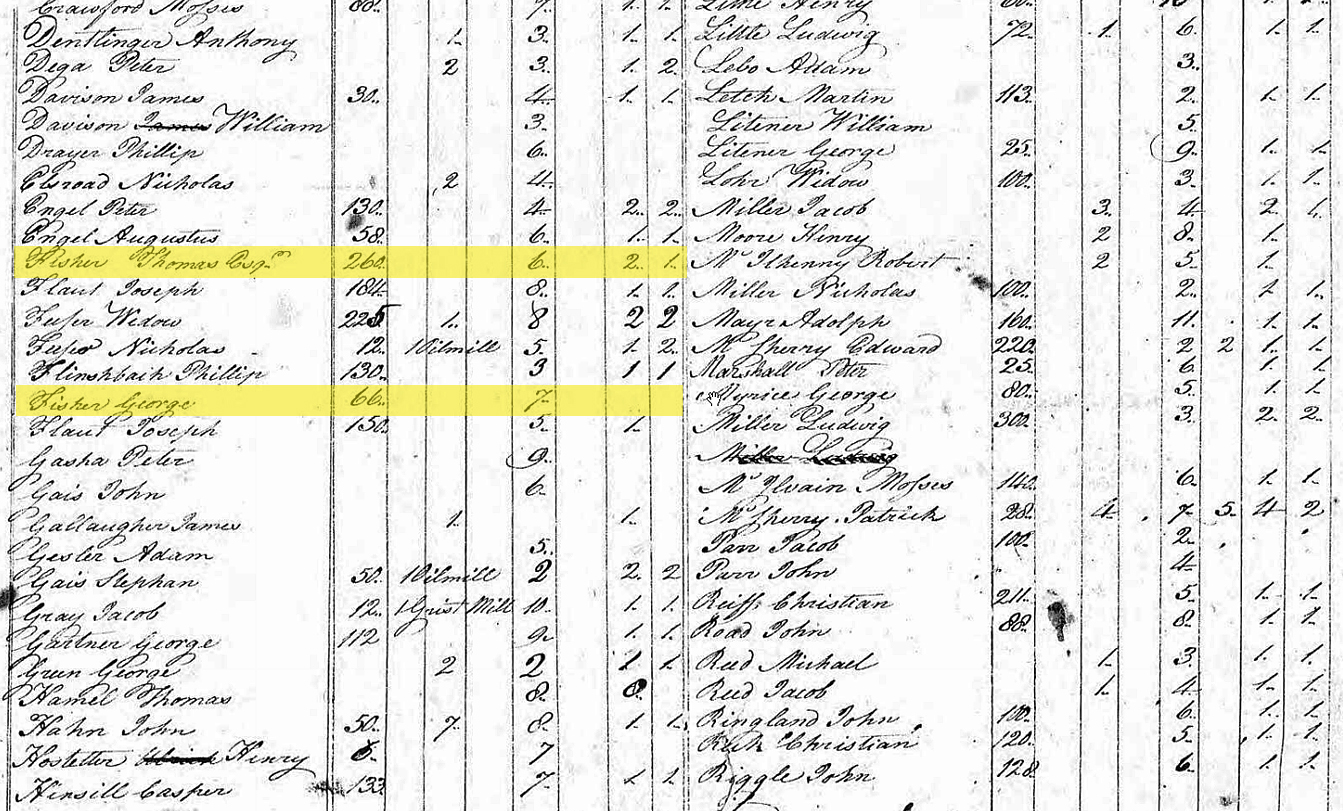 Crawford Mosses 80. 7. 1. 1.
Dentlinger Anthony 1. 3. 1. 1.
Dega Peter 2 3. 1. 2.
Davison James 30. 4. 1. 1.
Davison James William 3.
Drayer Phillip 6.
Elsroad Nicholas 2 4.
Engel Peter 130. 4. 2. 2.
Engel Augustus 58. 6. 1. 1.
Fisher Thomas Esqr. 260. 6. 2. 1.
Flaut Joseph 184. 8. 1. 1.
Widow 225 1. 8 2 2
Nicholas 12. 1 Oilmill 5. 1. 2.
Flinshbach Phillip 130. 3 1 1
Fisher George 66. 7.
Flaut Joseph 150. 5. 1.
Gasha Peter 9.
Gais John 6.
Gallaugher James 1. 1.
Gesler Adam 5.
Gais Stephan 50. 1 Oilmill 2 2. 2
Gray Jacob 12. 1 Grist Mill 10. 1. 1.
Gartner George 112 9. 1. 1.
Green George 2 2 1 1.
Hamel Thomas 8. 8.
Hahn John 50. 7. 8. 1. 1.
Hostetter Henry 6. 7
Hinsill Casper 133 7. 1 1.
Little Henry
Little Ludwig 72 1. 6. 1. 1.
Lebo Adam 3.
Letch Martin 113. 2. 1. 1.
Litener William 5.
Litener George 25. 9. 1. 1.
Lohr Widow 100. 3. 1. 1.
Miller Jacob 3. 4. 2. 4.
Moore Henry 2 8. 1.
Mc Ilhenny Robert 2 5. 1.
Miller Nicholas 100. 2. 1 1.
Mayr Adolph 160. 11. 1. 1.
Mc Sherry Edward 220. 2 2 1. 1.
Marshall Peter 25. 6. 1. 1.
Myrice George 80. 5. 1. 1.
Miller Ludwig 300. 3. 2. 2.
Miller Ludwig
Mc Ilvain Mosses 140. 6. 1. 1.
Mc Sherry Patrick 28. 4. 7. 5. 4 2
Parr Jacob 100. 2.
Parr John 4
Reiff Christian 211. 5. 1. 1.
Road John 88. 8. 1. 1.
Reed Michael 1. 3. 1. 1.
Reed Jacob 1. 4. 1. 1.
Ringland John 100. 6. 1. 1.
Christian 120. 5. 1. 1.
Riggle John 128. 6. 1 1.